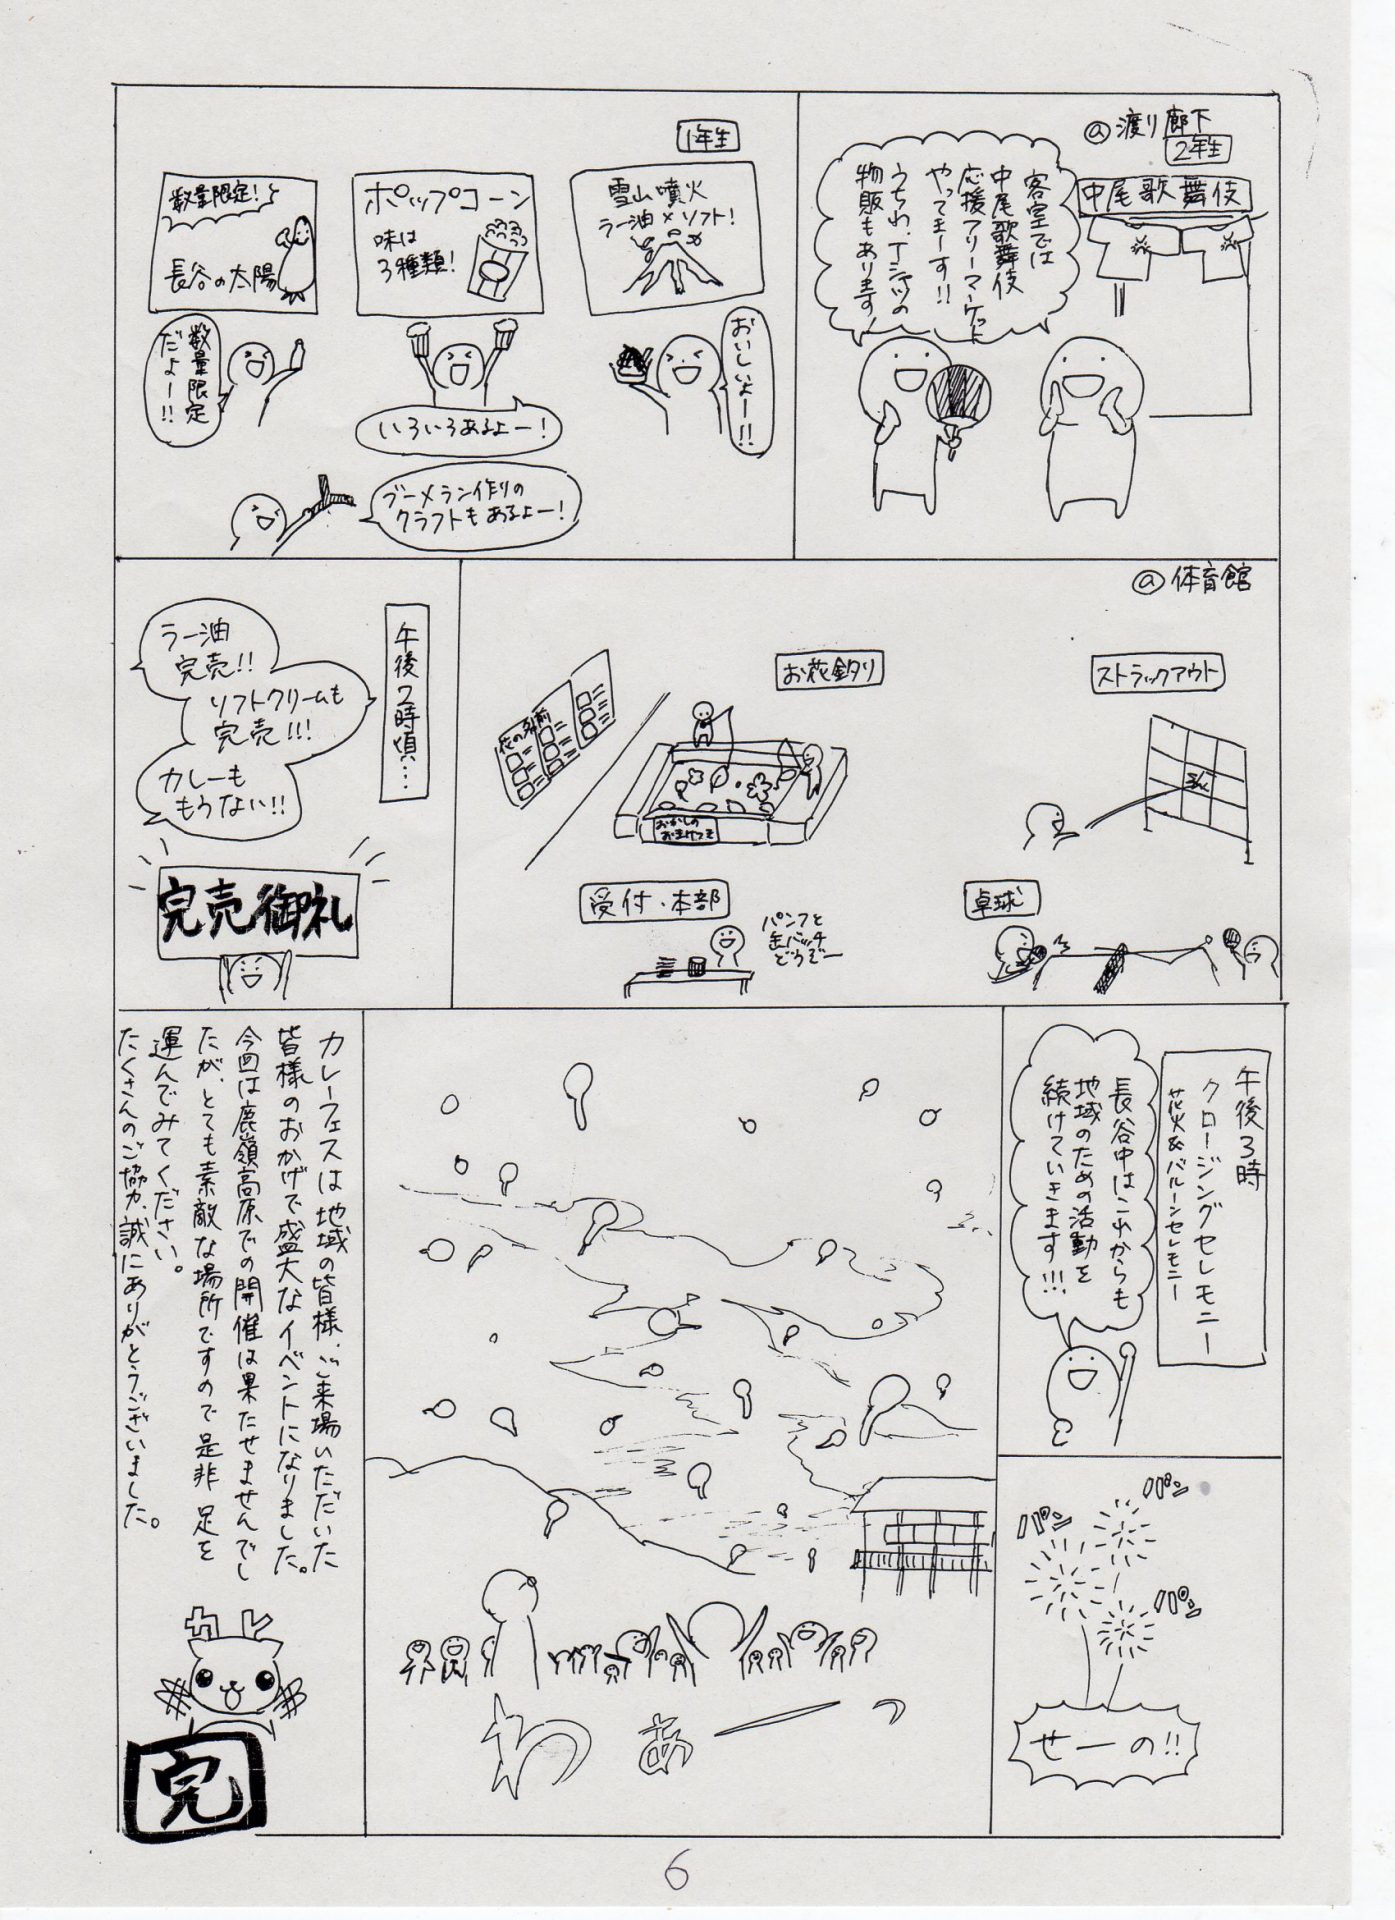 @渡り廊下
2年生
中尾歌舞伎
客室では
中尾歌舞伎
応援フリーマーケット
やってまーす!!
うちわ、Tシャツの
物販もあります!
1年生
雪山噴火
ラー油×ソフト!
おいしいよー!!
ポップコーン
味は
3種類!
いろいろあるよー!
数量限定!
長谷の太陽
数量限定
だよー!!
ブーメラン作りの
クラフトもあるよー!
@体育館
ストラックアウト
お花釣り
花の名前
おかしの
おまけつき
卓球
受付・本部
パンフと
缶バッチ
どうぞー
午後2時頃…
ラー油
完売!!
ソフトクリームも
完売!!!
カレーも
もうない!!
完売御礼
午後3時
クロージングセレモニー
花火&バルーンセレモニー
長谷中はこれからも
地域のための活動を
続けていきます!!!
パン
パン
パン
せーの!!
わぁーっ
カレーフェスは地域の皆様、ご来場いただいた
皆様のおかげで盛大なイベントになりました。
今回は鹿嶺高原での開催は果たせませんでし
たが、とても素敵な場所ですので是非足を
運んでみてください。
たくさんのご協力、誠にありがとうございました。
カレ
完
6